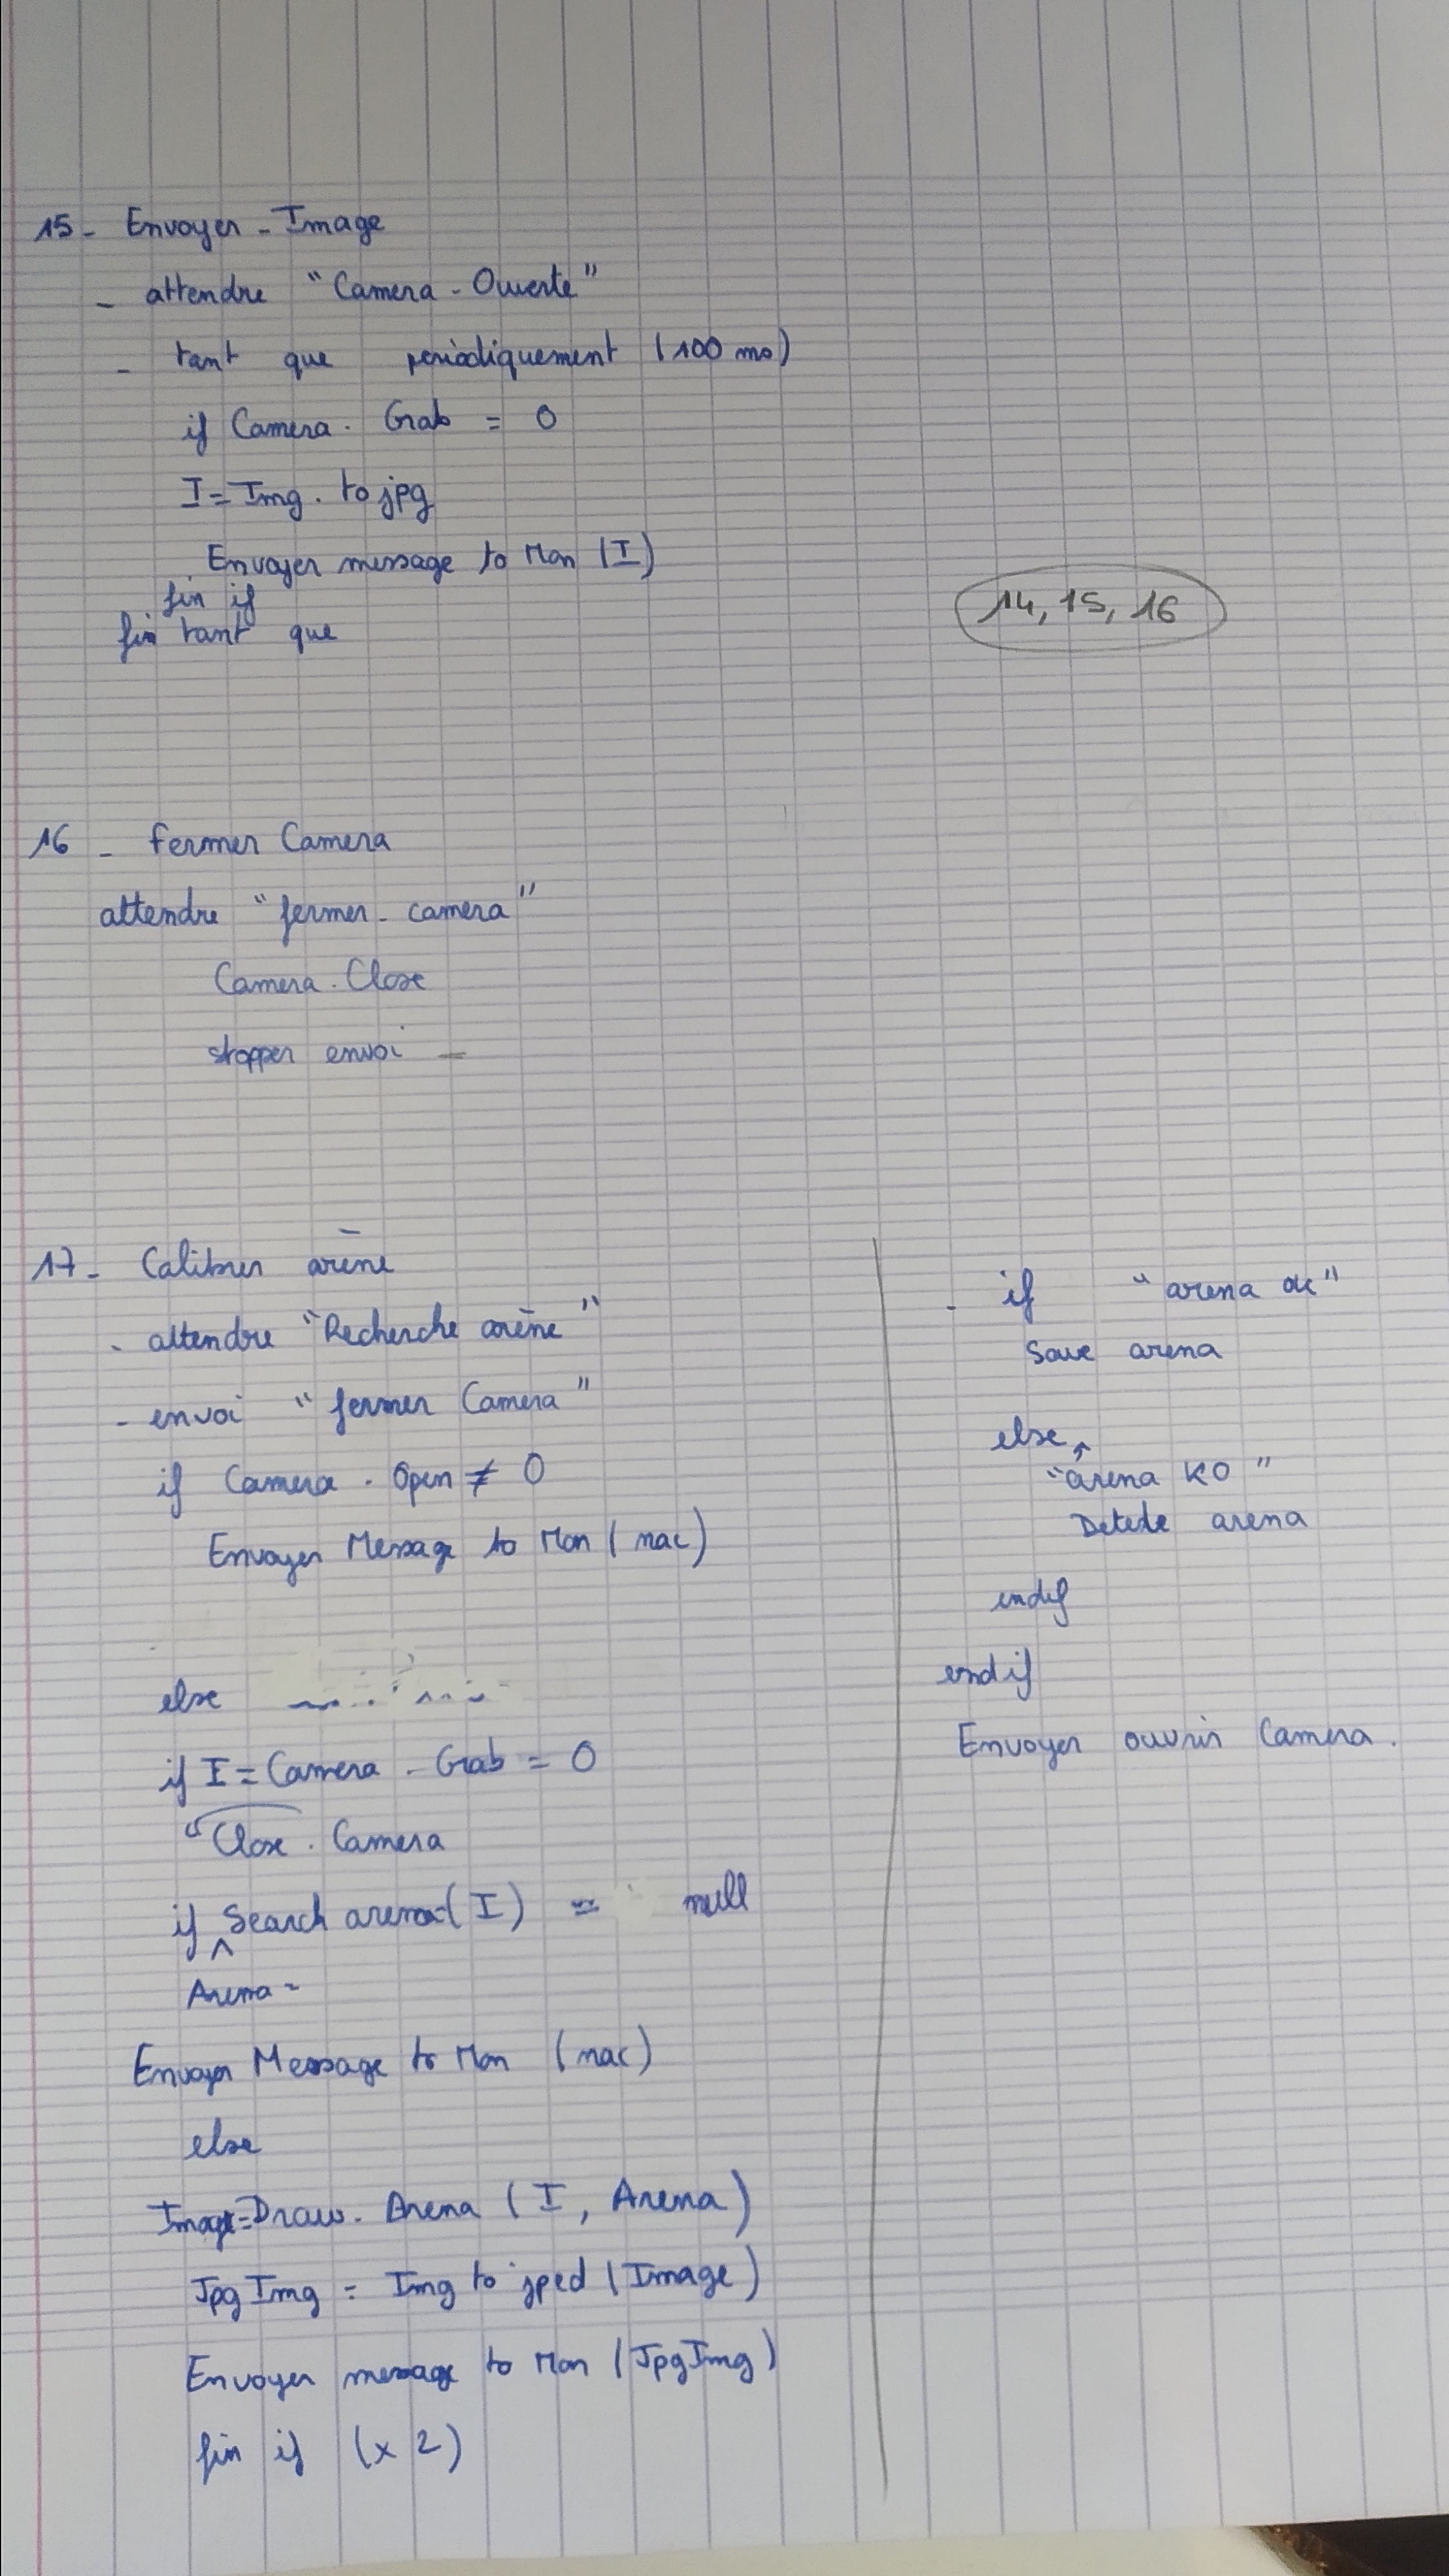 15 - Envoyer - Image
- attendre "Camera - Ouverte"
- tant que periodiquement (100 ms)
if Camera. Grab = 0
I = Img. to jpg
Envoyer message to Mon (I)
fin if
fin tant que
14, 15, 16
16 - fermer Camera
attendre "fermer - camera"
Camera. Close
stopper envoi -
17 - Calibrer arène
- attendre "Recherche arène"
- envoi "fermer Camera"
if Camera . Open ≠ 0
Envoyer Message to Mon (nac)
else
if I = Camera - Grab = 0
Close . Camera
if ^ Search arena (I) = null
Arena =
Envoyer Message to Mon (nac)
else
Image = Draw. Arena (I, Arena)
Jpg Img = Img to jped (Image)
Envoyer message to Mon (JpgImg)
fin if (x 2)
- if "arena ok"
Save arena
else ↑
"arena KO"
Detele arena
endif
endif
Envoyer ouvrir Camera.